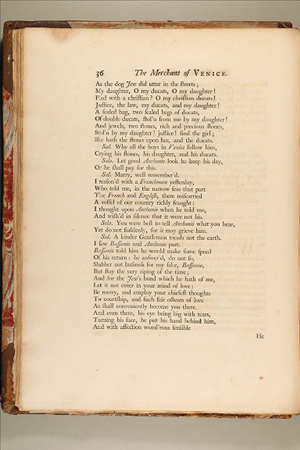 36 The Merchant of VENICE.
As the dog Jew did utter in the streets;
My daughter, O my ducats, O my daughter!
Fled with a christian? O my christian ducats!
Justice, the law, my ducats, and my daughter!
A sealed bag, two sealed bags of ducats,
Of double ducats, stol'n from me by my daughter!
And jewels, two stones, rich and precious stones,
Stol'n by my daughter! justice! find the girl;
She hath the stones upon her, and the ducats.
Sal. Why all the boys in Venice follow him,
Crying his stones, his daughter, and his ducats.
Sola. Let good Anthonio look he keep his day,
Or he shall pay for this.
Sal. Marry, well remember'd.
I reason'd with a Frenchman yesterday,
Who told me, in the narrow seas that part
The French and English, there miscarried
A vessel of our country richly fraught:
I thought upon Anthonio when he told me,
And wish'd in silence that it were not his.
Sola. You were best to tell Anthonio what you hear,
Yet do not suddenly, for it may grieve him.
Sal. A kinder Gentleman treads not the earth.
I saw Bassanio and Anthonio part.
Bassanio told him he would make some speed
Of his return: he answer'd, do not so,
Slubber not business for my sake, Bassanio,
But stay the very riping of the time;
And for the Jew's bond which he hath of me,
Let it not enter in your mind of love:
Be merry, and employ your chiefest thoughts
To courtship, and such fair ostents of love
As shall conveniently become you there.
And even there, his eye being big with tears,
Turning his face, he put his hand behind him,
And with affection wond'rous sensible
He